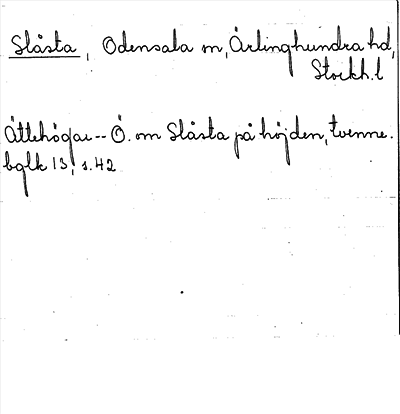 Slåsta, Odensala sn, Ärlinghundra hd,
Stockh. l
Ättehögar -- Ö. om Slåsta på höjden, tvenne.
bglk 13, s. 42